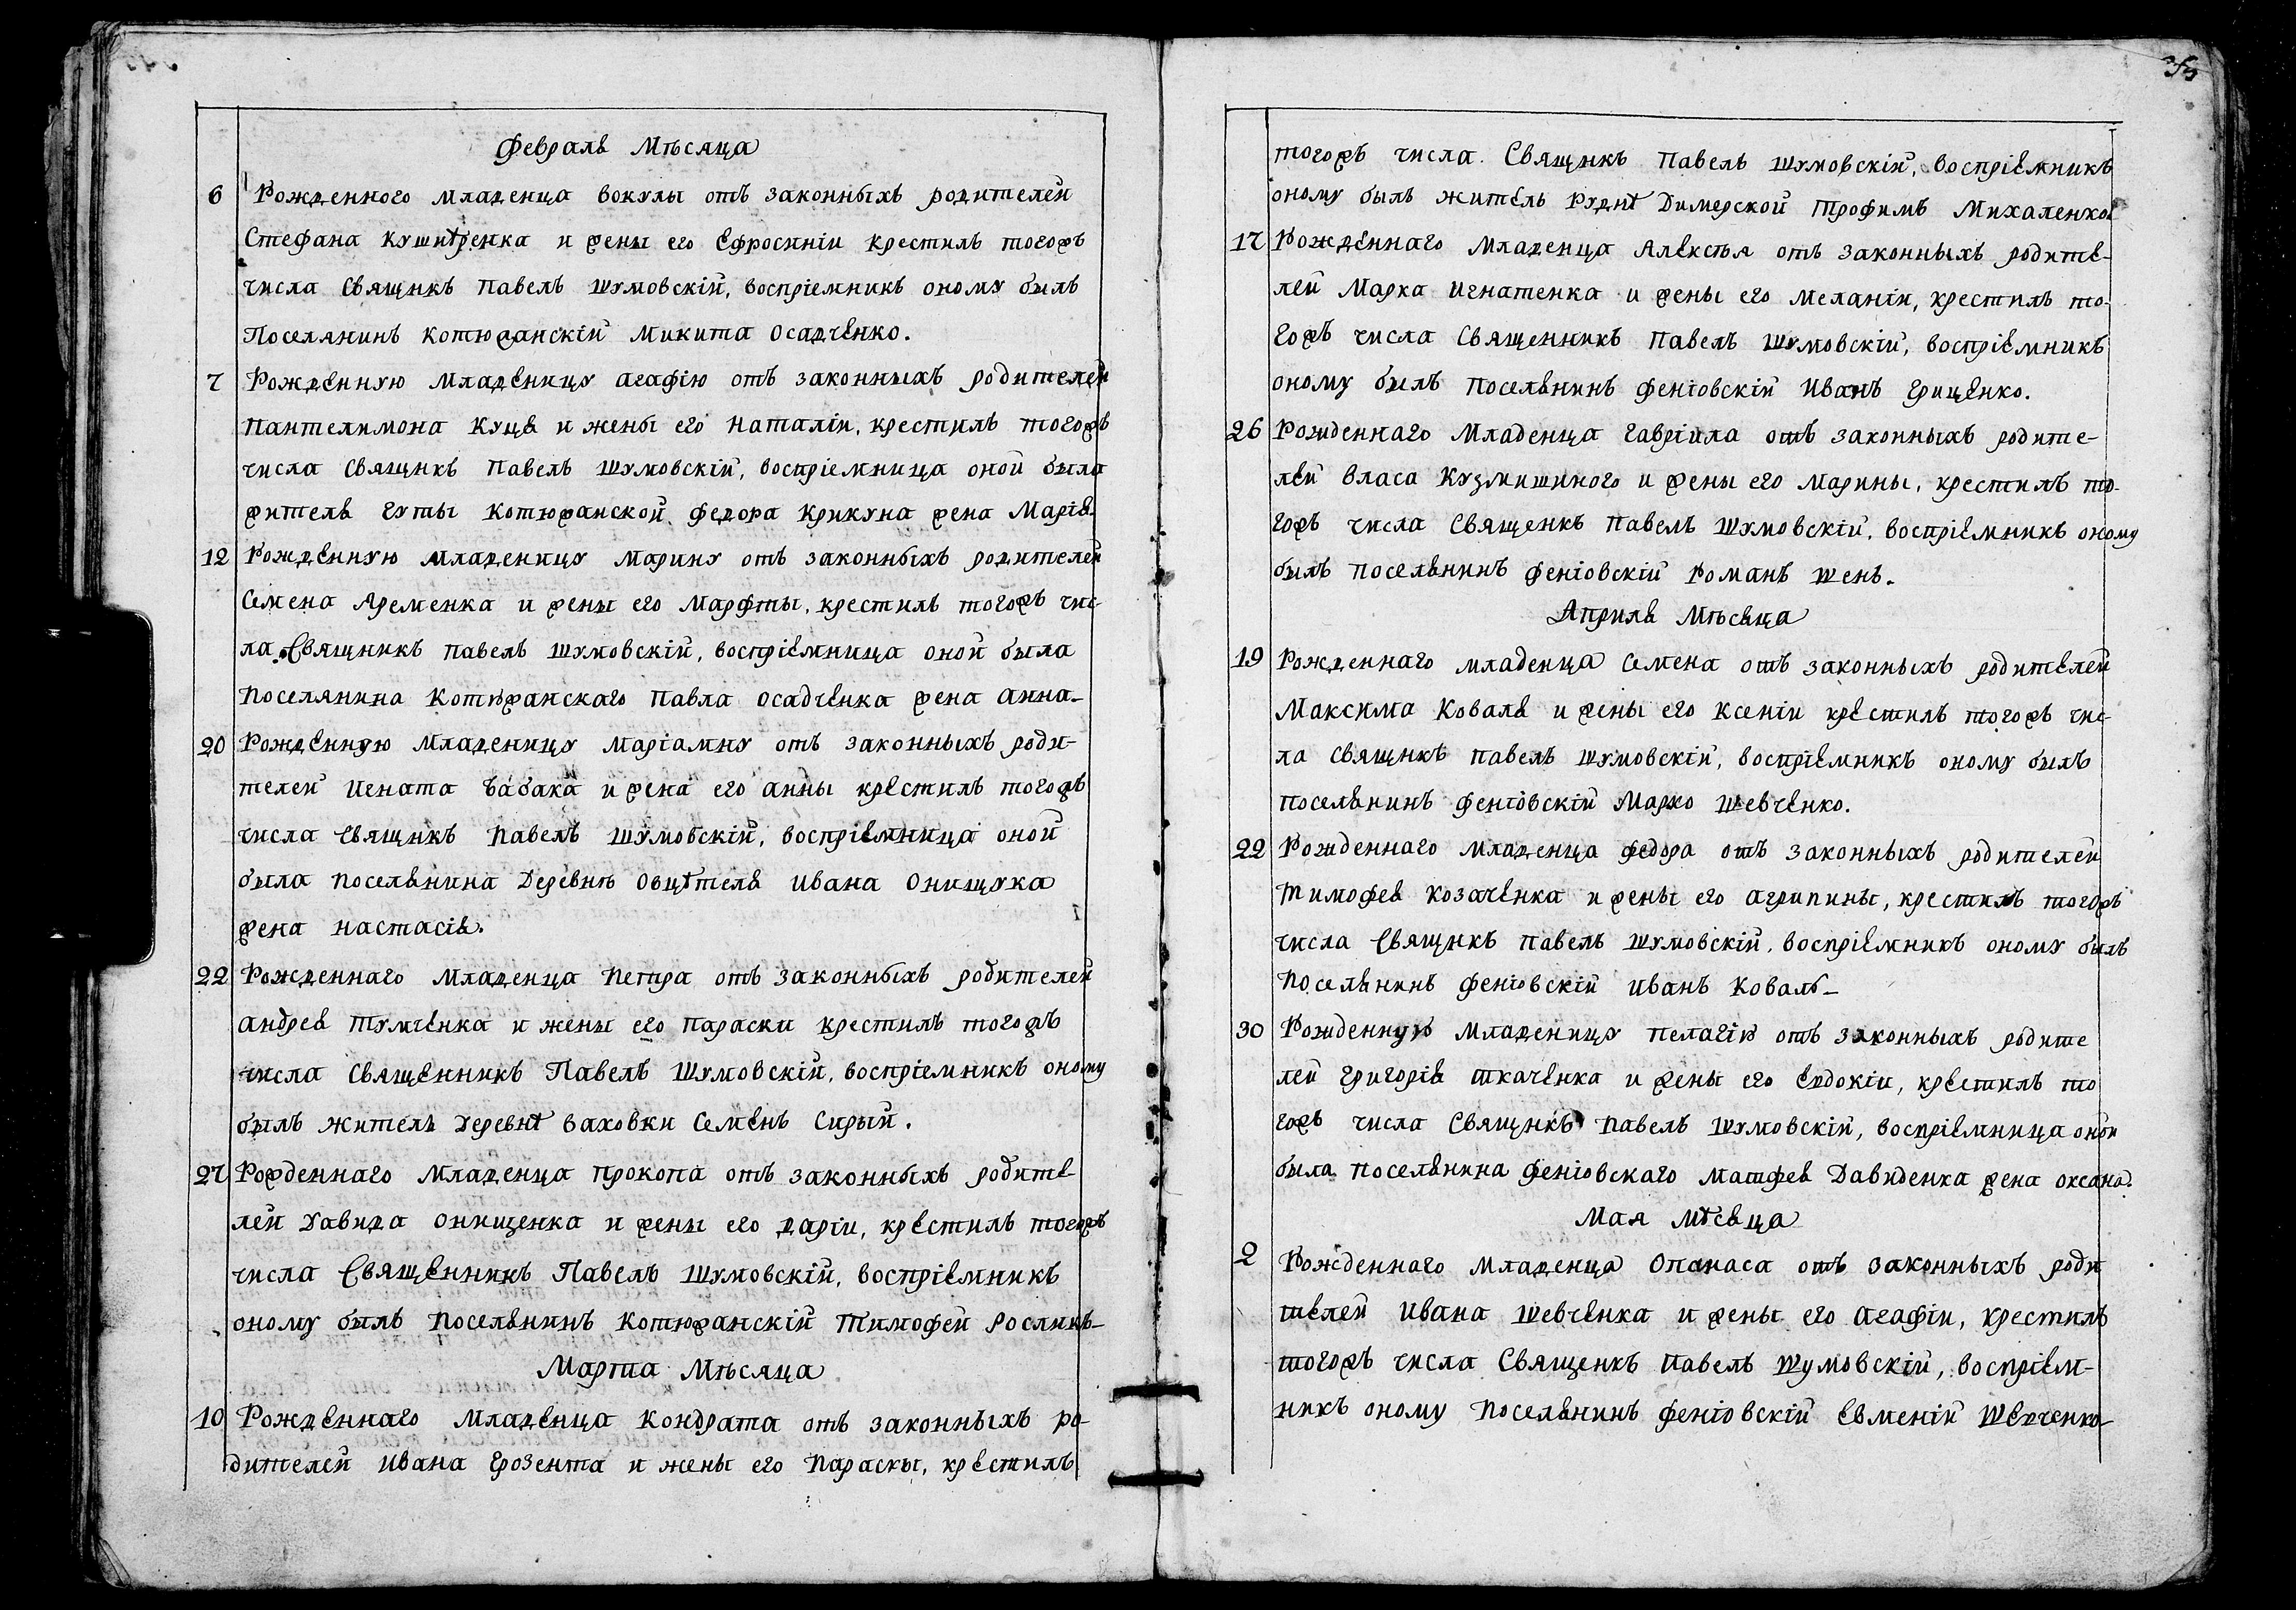 Февраль Мѣсяца
6 Рожденного младенца Вокулы отъ законныхъ родителей
Стефана Кушнѣренка и жены его Ефросиніи крестилъ тогожъ
числа Свящнкъ Павелъ Шумовскій, воспріемникъ оному былъ
Поселянинъ Котюжанскій Микита Осадченко.
7 Рожденную младеницу Агафію отъ законныхъ родителей
Пантелимона Куця и жены его Наталіи, крестилъ тогожъ
числа Свящнкъ Павелъ Шумовскій, воспріемница оной была
жителя Гуты Котюжанской Федора Крикуна жена Марія.
12 Рожденную младеницу Марину отъ законныхъ родителей
Семена Яременка и жены его Марфты, крестилъ тогожъ чис-
ла Свящникъ Павелъ Шумовскій, воспріемница оной была
Поселянина Котюжанскаго Павла Осадченка жена Анна
20 Рожденную Младеницу Маріамну отъ законныхъ роди-
телей Игната Бабака и жена его Анны крестилъ тогожъ
числа Свящнкъ Павелъ Шумовскій, воспріемница оной
была поселянина Деревнѣ Овцѣтеля Ивана Онищука
жена Настасія.
22 Рожденнаго Младенца Петра отъ законныхъ родителей
Андрея Тумченка и жены его Параски крестилъ тогожъ
числа Священникъ Павелъ Шумовскій, воспріемникъ оному
былъ житель Деревнѣ Ваховки Семенъ Сирый.
27 Рожденнаго Младенца Прокопа отъ законныхъ родите
лей Давида Онищенка и жены его Даріи, крестилъ тогожъ
числа Священникъ Павелъ Шумовскій, воспріемникъ
оному былъ Поселянинъ Котюжанскій Тимофей Росликъ
Марта Мѣсяца
10 Рожденнаго Младенца Кондрата отъ законныхъ ро-
дителей Ивана и жены его Параскы, крестилъ
тогожъ числа Свящнкъ Павелъ Шумовскій, воспріемникъ
оному былъ житель Руднѣ Димерской Трофимъ Михаленко
17 Рожденнаго Младенца Алексѣя отъ законныхъ родите-
лей Марка Игнатенка и жены его Меланіи, крестилъ то-
гожъ числа Священникъ Павелъ Шумовскій, воспріемникъ
оному былъ поселянинъ Феніовскій Иванъ Гриценко.
26 Рожденнаго Младенца Гавріила отъ законныхъ родите-
лей Власа Кузмишиного и жены его Марины, крестилъ то-
гожъ числа Священкъ Павелъ Шумовскій, воспріемникъ оному
былъ поселянинъ Феніовскій Романъ Шень.
Априля Мѣсяца
19 Рожденнаго младенца Семена отъ законныхъ родителей
Максима Коваля и жены его Ксеніи крестилъ тогожъ чис-
ла Свящнкъ Павелъ Шумовскій, воспріемникъ оному былъ
поселянинъ Феніовскій Марко Шевченко.
22 Рожденнаго младенца Федора отъ законныхъ родителей
Тимофея Козаченка и жены его Агрипины, крестилъ тогожъ
числа Свящнкъ Павелъ Шумовскій, воспріемникъ оному былъ
Поселянинъ Феніовскій Иванъ Коваль
30 Рожденную Младеницу Пелагію отъ законныхъ родите
лей Григорія Ткаченка и жены его Евдокіи, крестилъ то
гожъ числа Свящнкъ Павелъ Шумовскій, воспріемница оной
была поселянина Феніовскаго Матфея Давиденка жена Оксана
Мая Мѣсяца
2 Рожденнаго Младенца Опанаса отъ законныхъ роди
телей Ивана Шевченка и жены его Агафіи, крестилъ
тогожъ числа Священкъ Павелъ Шумовскій, воспріем-
никъ оному Поселянинъ Феніовскій Евменій Шевченко